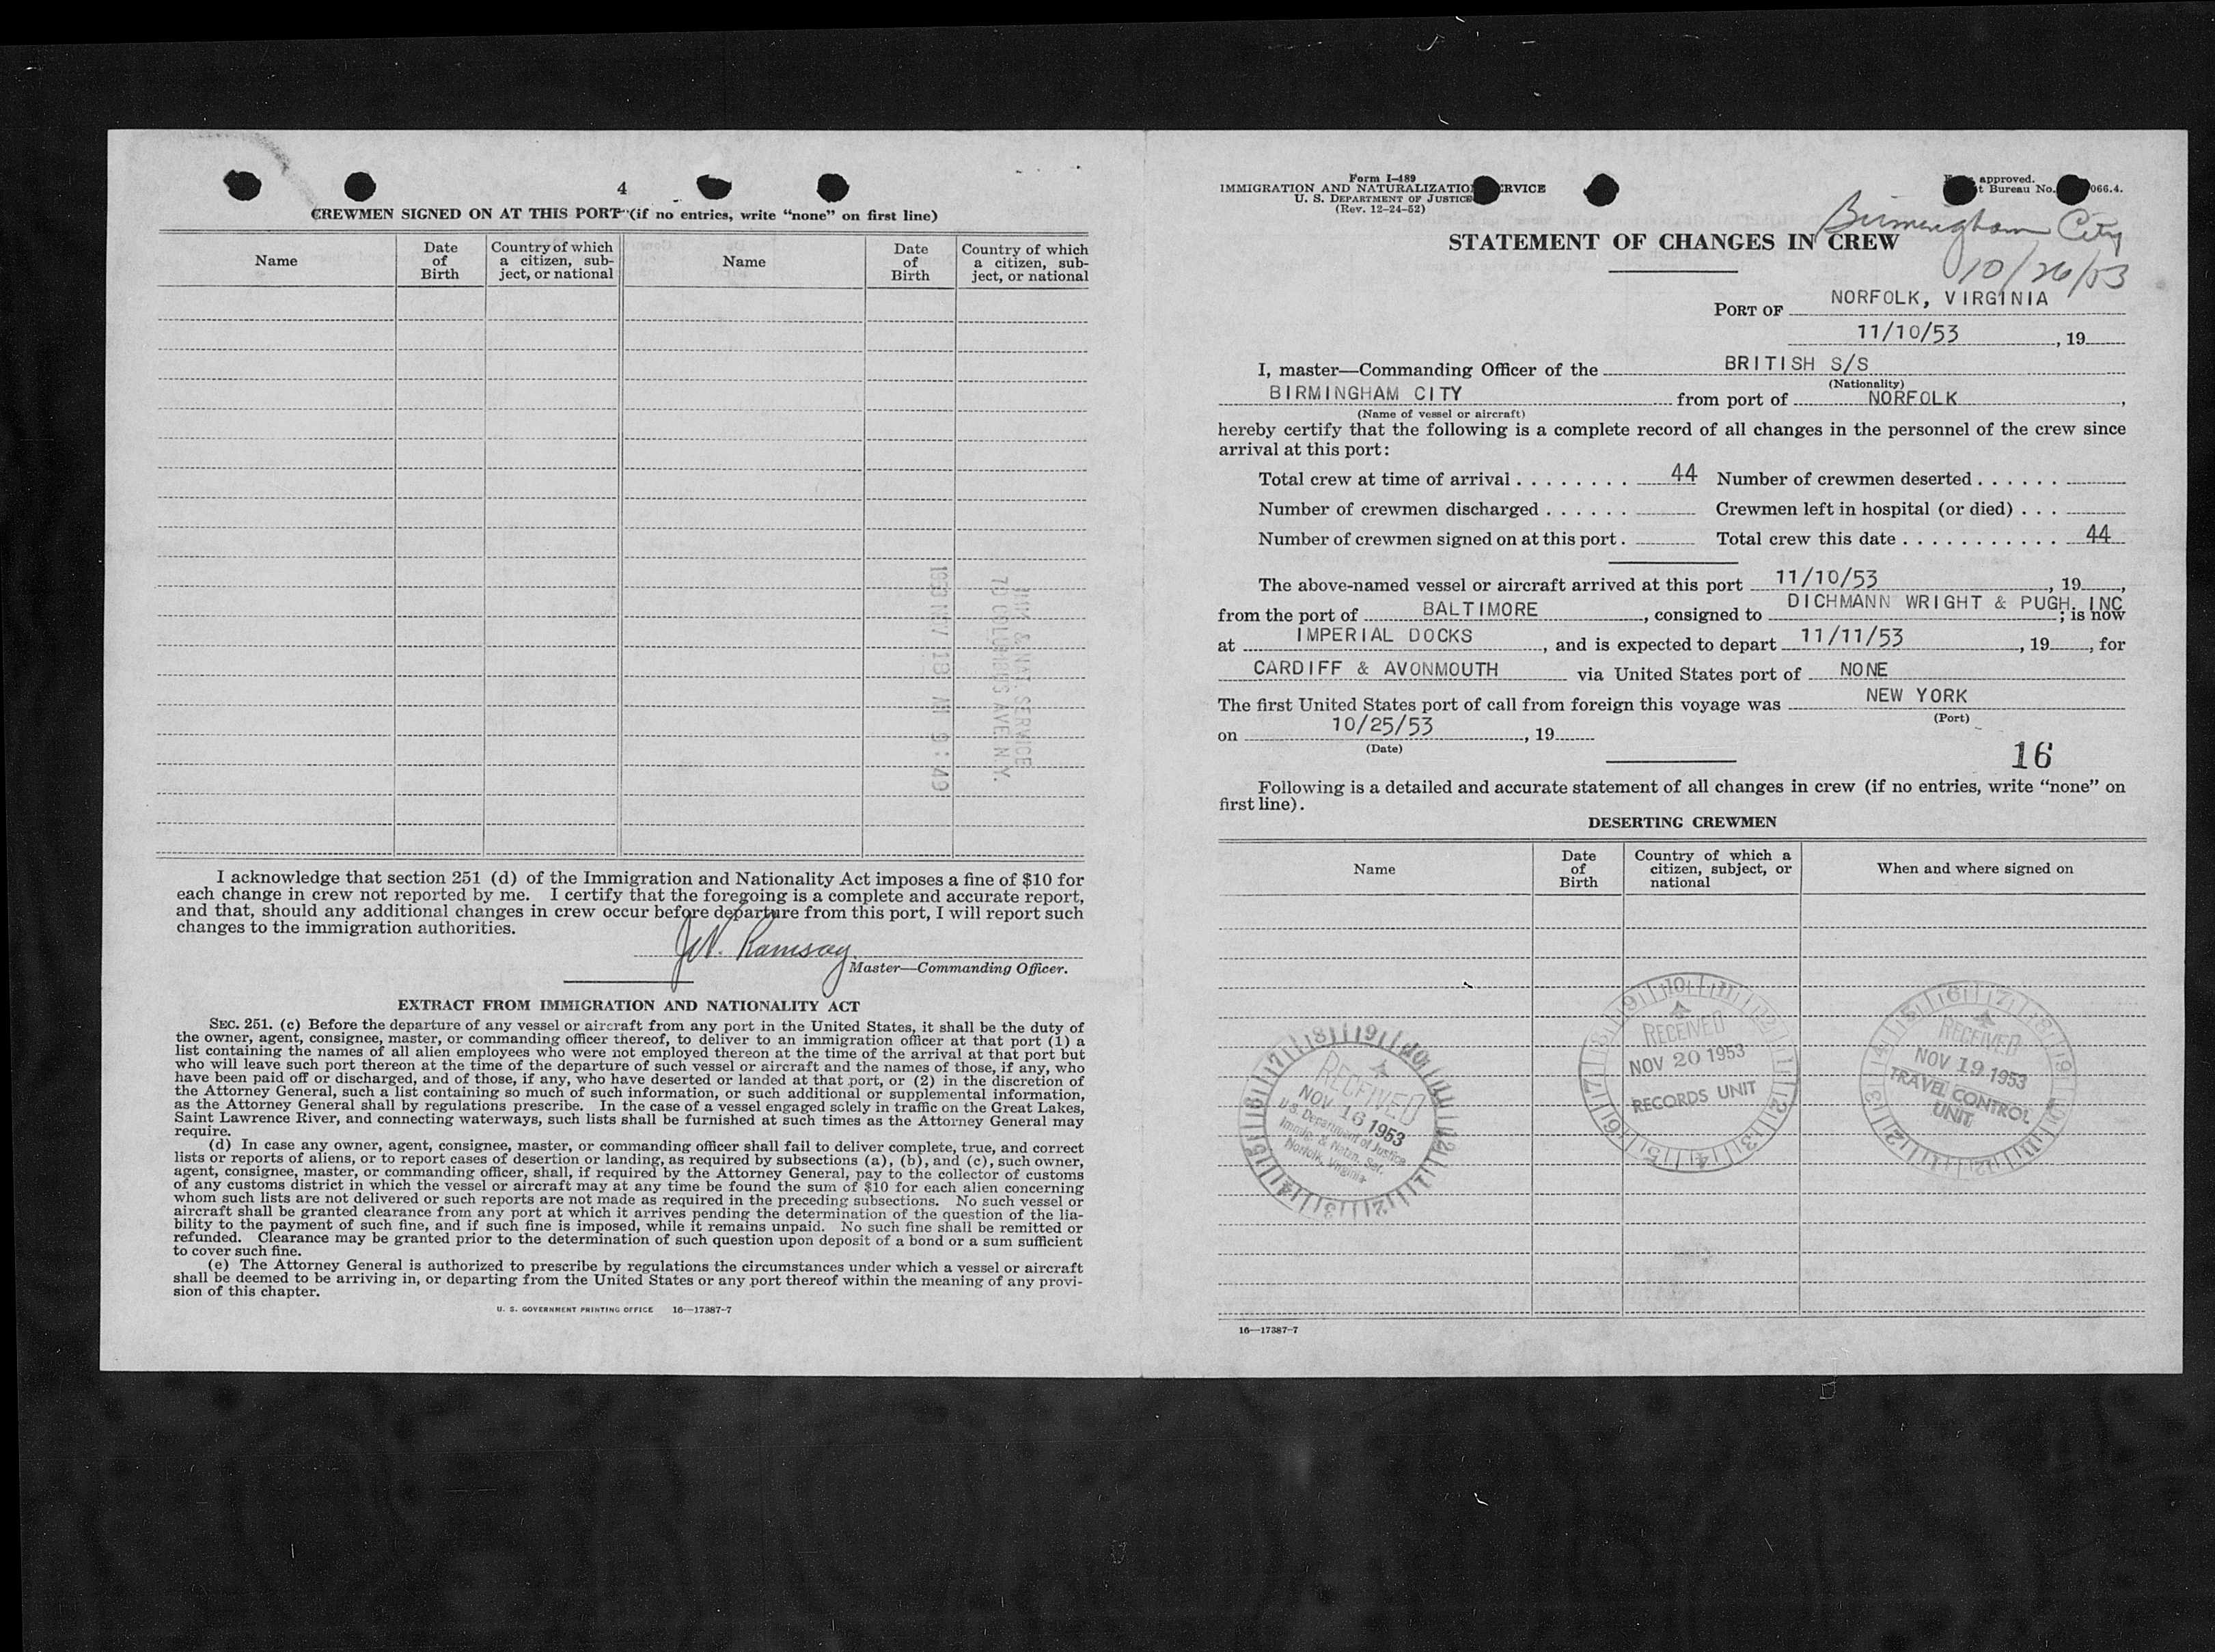 4
CREWMEN SIGNED ON AT THIS PORT (if no entries, write “none” on first line)
Name
Date of Birth
Country of which a citizen, subject, or national
Name
Date of Birth
Country of which a citizen, subject, or national
IMM. & NAT. SERVICE
70 COLUMBUS AVE. N.Y.
1953 NOV 18 AM 9:49
I acknowledge that section 251 (d) of the Immigration and Nationality Act imposes a fine of $10 for
each change in crew not reported by me. I certify that the foregoing is a complete and accurate report,
and that, should any additional changes in crew occur before departure from this port, I will report such
changes to the immigration authorities.
Ramsay
Master—Commanding Officer.
EXTRACT FROM IMMIGRATION AND NATIONALITY ACT
SEC. 251. (c) Before the departure of any vessel or aircraft from any port in the United States, it shall be the duty of
the owner, agent, consignee, master, or commanding officer thereof, to deliver to an immigration officer at that port (1) a
list containing the names of all alien employees who were not employed thereon at the time of the arrival at that port but
who will leave such port thereon at the time of the departure of such vessel or aircraft and the names of those, if any, who
have been paid off or discharged, and of those, if any, who have deserted or landed at that port, or (2) in the discretion of
the Attorney General, such a list containing so much of such information, or such additional or supplemental information,
as the Attorney General shall by regulations prescribe. In the case of a vessel engaged solely in traffic on the Great Lakes,
Saint Lawrence River, and connecting waterways, such lists shall be furnished at such times as the Attorney General may
require.
(d) In case any owner, agent, consignee, master, or commanding officer shall fail to deliver complete, true, and correct
lists or reports of aliens, or to report cases of desertion or landing, as required by subsections (a), (b), and (c), such owner,
agent, consignee, master, or commanding officer, shall, if required by the Attorney General, pay to the collector of customs
of any customs district in which the vessel or aircraft may at any time be found the sum of $10 for each alien concerning
whom such lists are not delivered or such reports are not made as required in the preceding subsections. No such vessel or
aircraft shall be granted clearance from any port at which it arrives pending the determination of the question of the lia-
bility to the payment of such fine, and if such fine is imposed, while it remains unpaid. No such fine shall be remitted or
refunded. Clearance may be granted prior to the determination of such question upon deposit of a bond or a sum sufficient
to cover such fine.
(e) The Attorney General is authorized to prescribe by regulations the circumstances under which a vessel or aircraft
shall be deemed to be arriving in, or departing from the United States or any port thereof within the meaning of any provi-
sion of this chapter.
U. S. GOVERNMENT PRINTING OFFICE 16—17387-7
Form I-489
IMMIGRATION AND NATURALIZATION SERVICE
U. S. DEPARTMENT OF JUSTICE
(Rev. 12-24-52)
approved.
t Bureau No. 066.4.
Birmingham City
10/26/53
STATEMENT OF CHANGES IN CREW
PORT OF NORFOLK, VIRGINIA
11/10/53, 19
I, master—Commanding Officer of the BRITISH S/S
(Nationality)
BIRMINGHAM CITY from port of NORFOLK,
(Name of vessel or aircraft)
hereby certify that the following is a complete record of all changes in the personnel of the crew since
arrival at this port:
Total crew at time of arrival . . . . . . . . 44 Number of crewmen deserted . . . . . .
Number of crewmen discharged . . . . . . Crewmen left in hospital (or died) . . .
Number of crewmen signed on at this port . Total crew this date . . . . . . . . . . . 44
The above-named vessel or aircraft arrived at this port 11/10/53, 19,
from the port of BALTIMORE, consigned to DICHMANN WRIGHT & PUGH, INC; is now
at IMPERIAL DOCKS, and is expected to depart 11/11/53, 19, for
CARDIFF & AVONMOUTH via United States port of NONE
The first United States port of call from foreign this voyage was NEW YORK
(Port)
on 10/25/53, 19
(Date)
16
Following is a detailed and accurate statement of all changes in crew (if no entries, write “none” on
first line).
DESERTING CREWMEN
Name
Date of Birth
Country of which a citizen, subject, or national
When and where signed on
RECEIVED
NOV 16 1953
U.S. Department of Justice
Immig. & Natzn. Ser.
Norfolk, Virginia
RECEIVED
NOV 20 1953
RECORDS UNIT
RECEIVED
NOV 19 1953
TRAVEL CONTROL
UNIT
16—17387-7